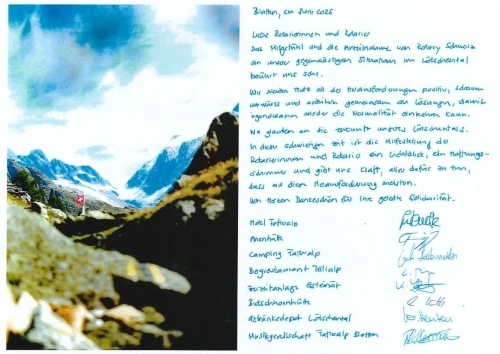 Blatten, im Juni 2025
Liebe Rotarierinnen und Rotarier
Das Mitgefühl und die Anteilnahme von Rotary Schweiz
an unser gegenwärtigen Situation im Lötschental
berührt uns sehr.
Wir bleiben trotz all der Herausforderungen positiv, schauen
vorwärts und arbeiten gemeinsam an Lösungen, damit
irgendwann wieder die Normalität einkehren kann.
Wir glauben an die Zukunft unseres Lötschentals.
In dieser schwierigen Zeit ist die Hilfestellung der
Rotarierinnen und Rotarier ein Lichtblick, ein Hoffnungs-
schimmer und gibt uns Kraft, alles dafür zu tun,
dass wir diese Herausforderung meistern.
Von Herzen Dankeschön für Ihre gelebte Solidarität.
Hotel Fafleralp
Anenhütte
Camping Fafleralp
Bergrestaurant Tellialp
Freizeitanlage
Bietschhornhütte
Getränkedepot Lötschental
Musikgesellschaft Fafleralp Blatten